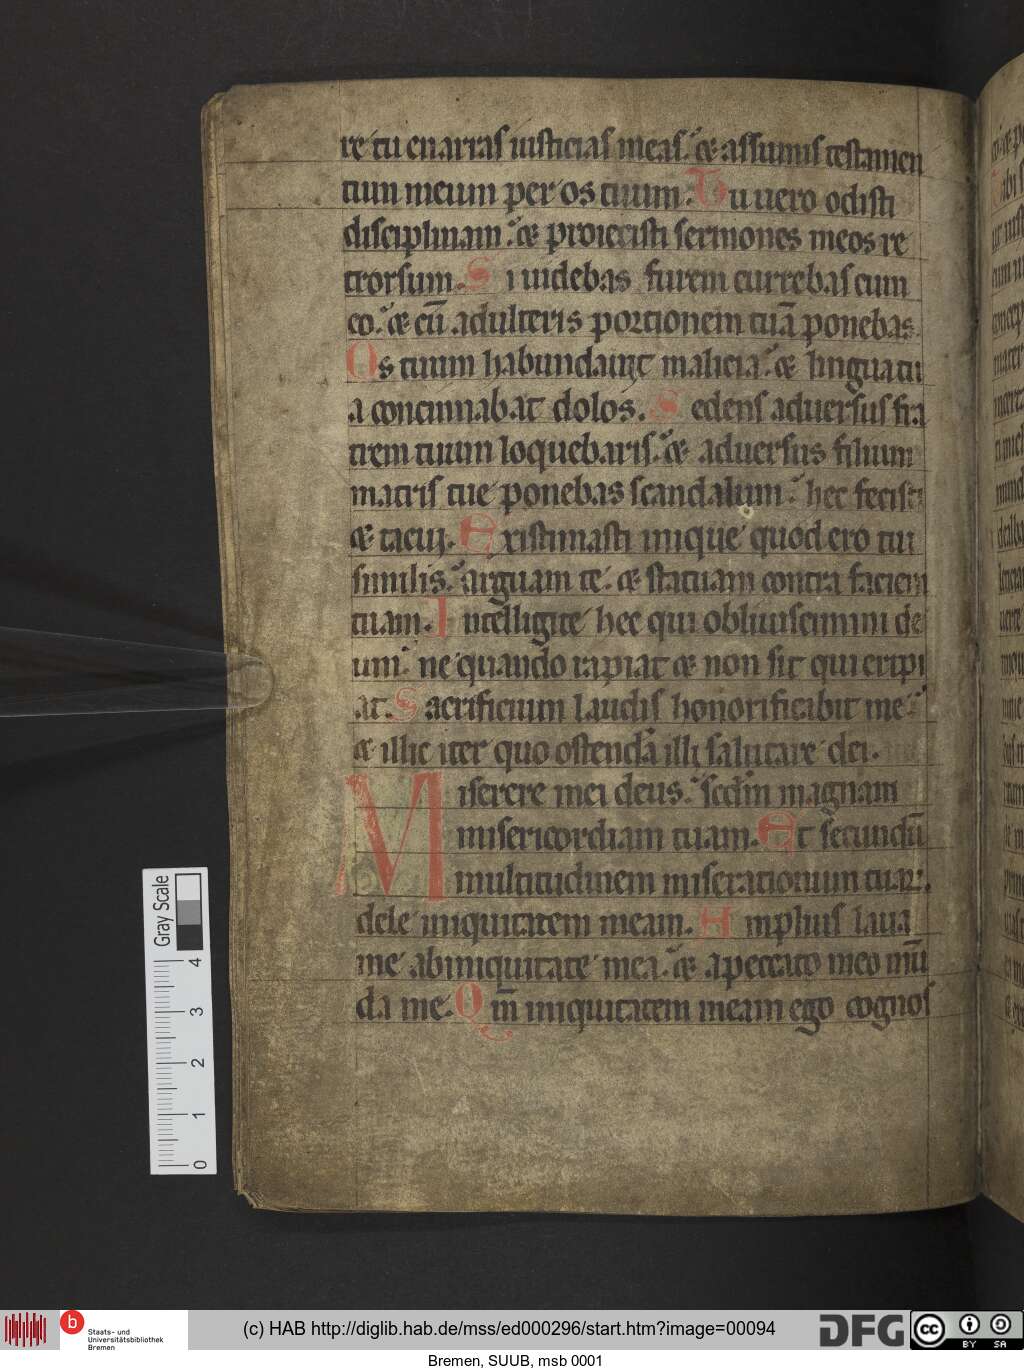 re tu enarras iusticias meas. & assumis testamen
tum meum per os tuum. Tu uero odisti
disciplinam. & proiecisti sermones meos re
trorsum. Si uidebas furem currebas cum
eo. & cū adulteris portionem tuā ponebas.
Os tuum habundauit malicia. & lingua tu
a concinnabat dolos. Sedens aduersus fra
trem tuum loquebaris. & aduersus filium
matris tue ponebas scandalum. hec fecisti
& tacui. Existimasti inique quod ero tui
similis. arguam te & statuam contra faciem
tuam. Intelligite hec qui obliuiscimini de
um. ne quando rapiat & non sit qui eripi
at. Sacrificium laudis honorificabit me.
& illic iter quo ostendā illi salutare dei.
Miserere mei deus. scdm magnam
misericordiam tuam. Et secundū
multitudinem miserationum tuaꝝ.
dele iniquitatem meam. Amplius laua
me ab iniquitate mea. & a peccato meo mū
da me. Qm̄ iniquitatem meam ego cognos
Gray Scale
4
3
2
1
0
b
Staats- und
Universitätsbibliothek
Bremen
(c) HAB http://diglib.hab.de/mss/ed000296/start.htm?image=00094
DFG
cc BY SA
Bremen, SUUB, msb 0001